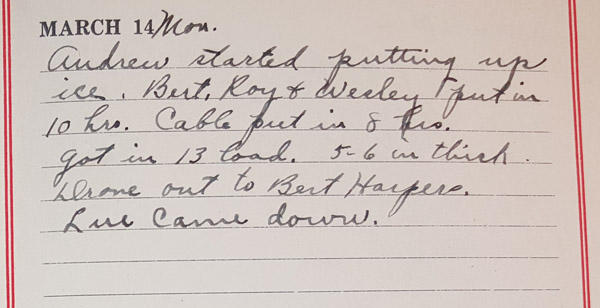 MARCH 14 Mon.
Andrew started putting up
ice. Bert, Roy & Wesley put in
10 hrs. Cable put in 8 hrs.
got in 13 load. 5-6 in thick.
Drove out to Bert Harpers.
Lue came down.